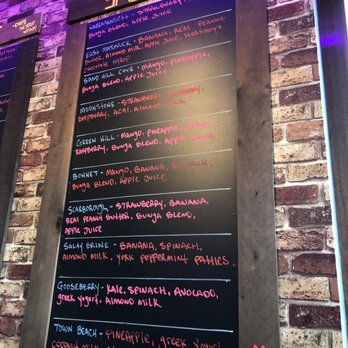 Narragansett - Strawberry,
Bunya Blend, Apple Juice
East Matunuck - Banana, Real Peanut
Butter, Almond Milk, Apple Juice, Hershey's
Chocolate Syrup
Sand Hill Cove - Mango, Pineapple,
Bunya Blend, Apple Juice
Moonstone - Strawberry,
Raspberry, Acai, Almond Milk
Green Hill - Mango, Pineapple,
Raspberry, Bunya Blend, Apple Juice
Bonnet - Mango, Banana, Spinach,
Bunya Blend, Apple Juice
Scarborough - Strawberry, Banana,
Real Peanut Butter, Bunya Blend,
Apple Juice
Salty Brine - Banana, Spinach,
Almond Milk, York Peppermint Patties
Gooseberry - Kale, Spinach, Avocado,
Greek Yogurt, Almond Milk
Town Beach - Pineapple, Greek
Coconut Milk